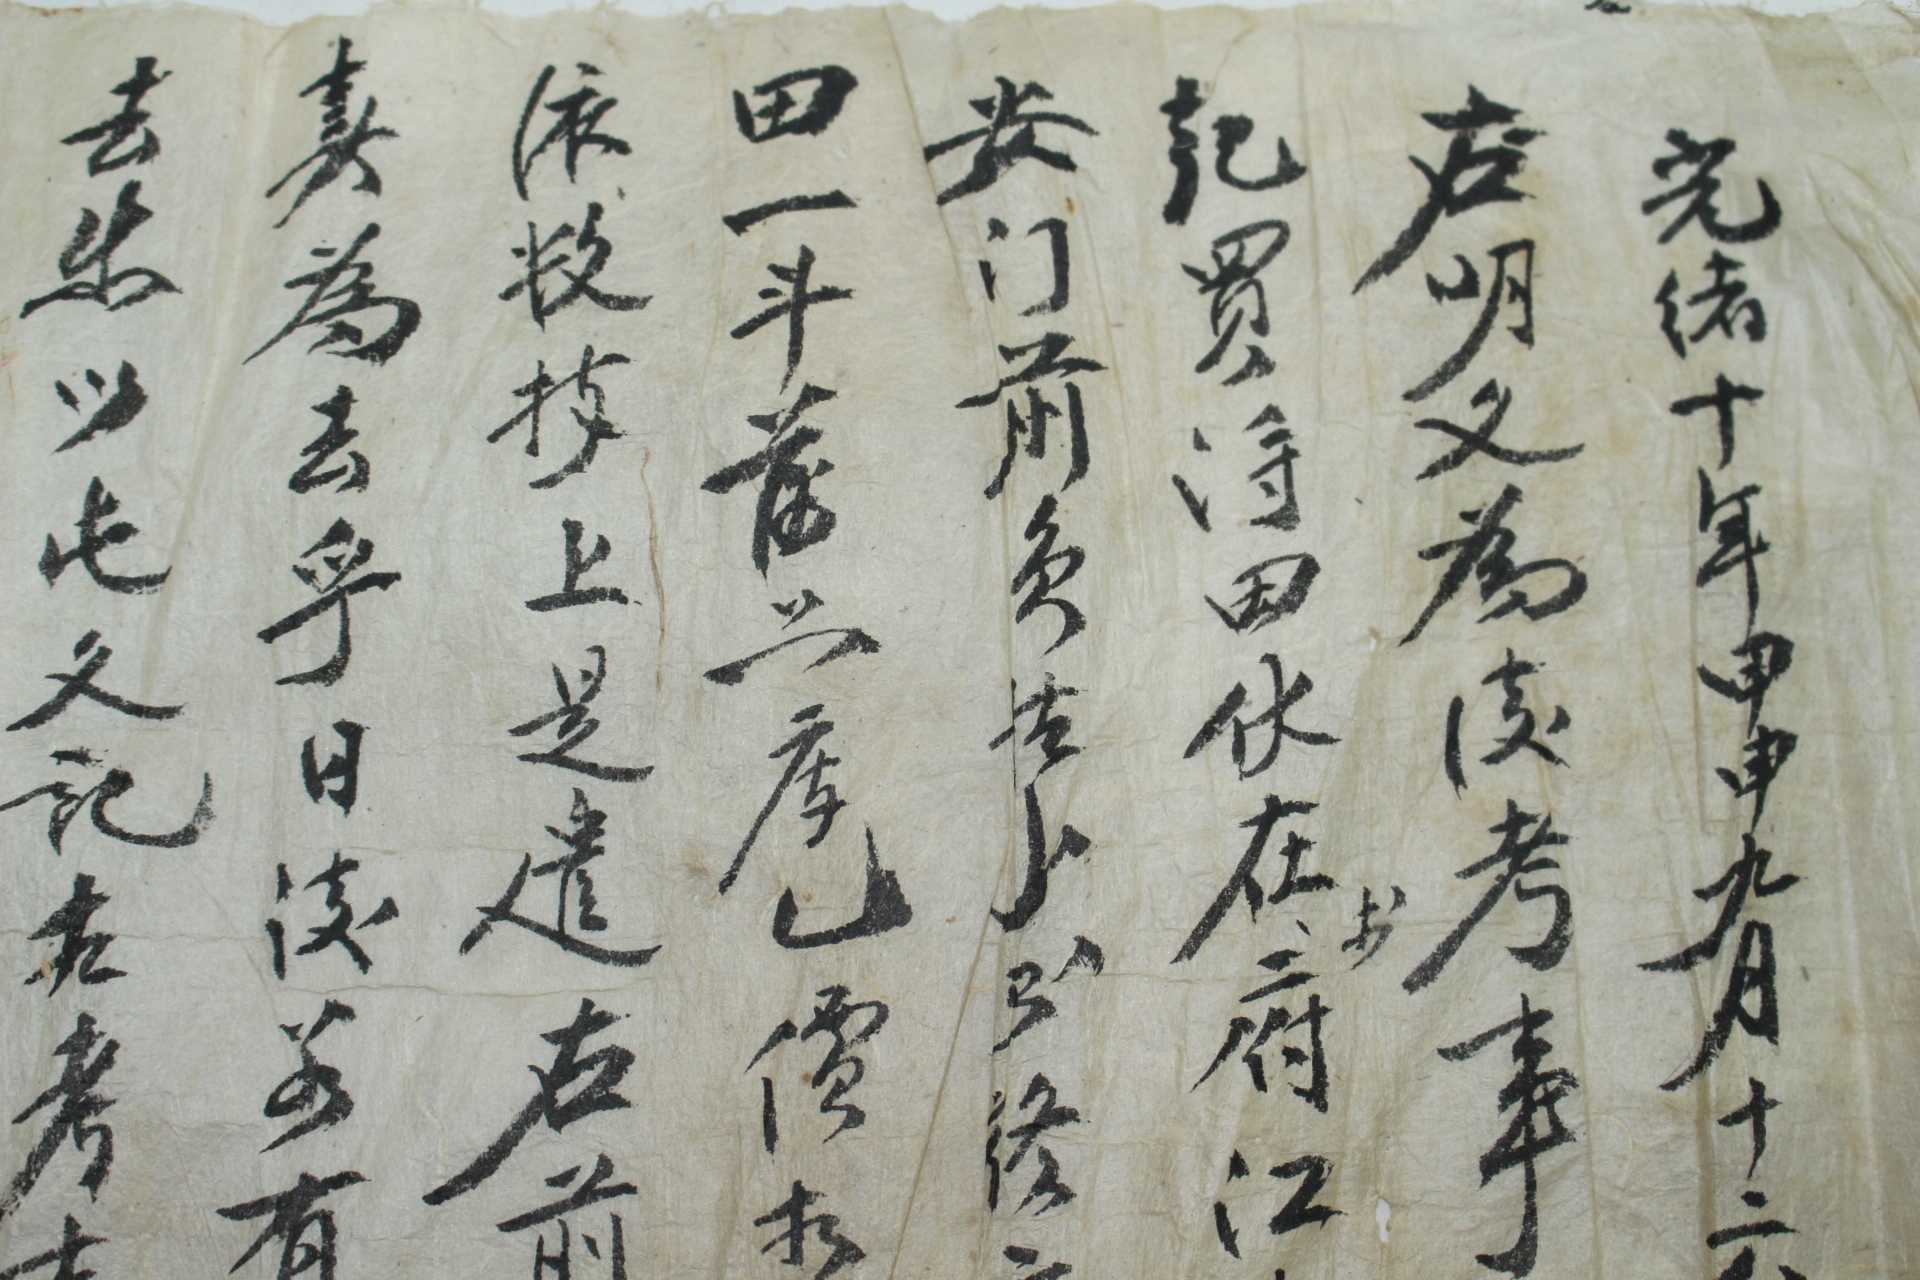 光緒十年甲申九月十二
右明文為後考事
記買得田伏在二府江
安門前員
田一斗落只庫乙價折
依数捧上是遣右前
賣為去乎日後若有
去等以此文記相考